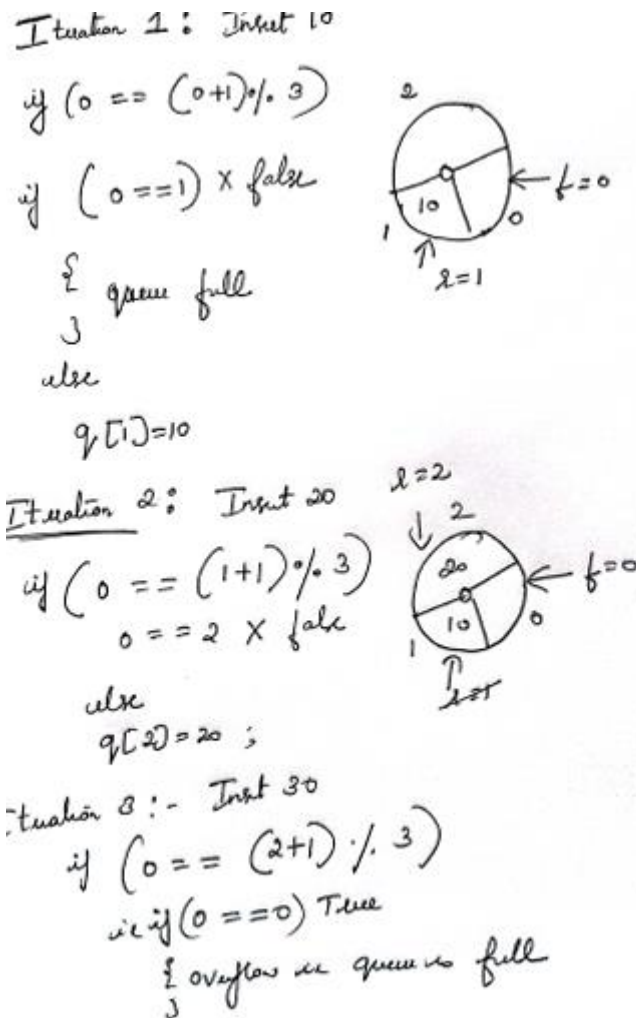 Iteration 1: Insert 10
if (0 == (0+1) % 3)
if (0 == 1) × false
{ queue full
}
else
q[1]=10
2
10
1
0
f=0
r=1
Iteration 2: Insert 20
if (0 == (1+1) % 3)
0 == 2 × false
else
q[2]=20 ;
r=2
2
20
10
1
0
f=0
r=1
Iteration 3 :- Insert 30
if (0 == (2+1) % 3)
ie if (0 == 0) True
{ overflow ie queue is full
}